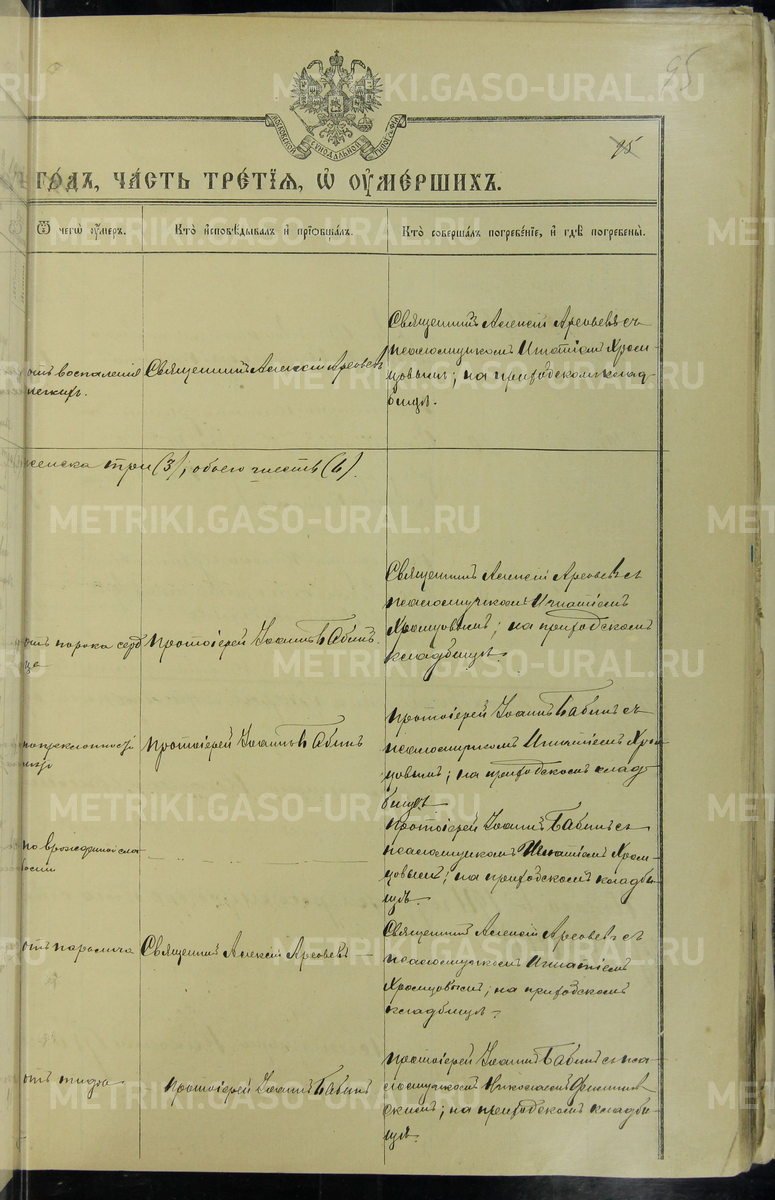 95
МОСКОВСКОЙ СѴНОДАЛЬНОЙ ТИПОГРАФІИ
95
ГОДЪ, ЧАСТЬ ТРЕТІЯ, Ѡ ОУМЕРШИХЪ.
Ѿ чегѡ оумеръ.
Кто исповѣдывалъ и пріобщалъ.
Кто совершалъ погребеніе, и гдѣ погребены.
отъ воспаленія
легкихъ.
Священникъ Алексій Арефьевъ
Священникъ Алексій Арефьевъ съ
псаломщикомъ Игнатіемъ Хром-
цовымъ; на приходскомъ клад-
бищѣ.
женска три (3), обоего шесть (6).
отъ порока серд
ца
Протоіерей Іоаннъ Бабинъ
Священникъ Алексій Арефьевъ съ
псаломщикомъ Игнатіемъ
Хромцовымъ; на приходскомъ
кладбищѣ.
преклонности
Протоіерей Іоаннъ Бабинъ
Протоіерей Іоаннъ Бабинъ съ
псаломщикомъ Игнатіемъ Хром-
цовымъ; на приходскомъ клад-
бищѣ.
по врожденной сла
бости
Протоіерей Іоаннъ Бабинъ съ
псаломщикомъ Игнатіемъ Хром-
цовымъ; на приходскомъ кладби-
щѣ.
отъ паралича
Священникъ Алексій Арефьевъ
Священникъ Алексій Арефьевъ съ
псаломщикомъ Игнатіемъ
Хромцовымъ; на приходскомъ
кладбищѣ.
отъ тифа
Протоіерей Іоаннъ Бабинъ
Протоіерей Іоаннъ Бабинъ съ пса-
ломщикомъ Николаемъ
скимъ; на приходскомъ кладби-
щѣ.
METRIKI.GASO-URAL.RU